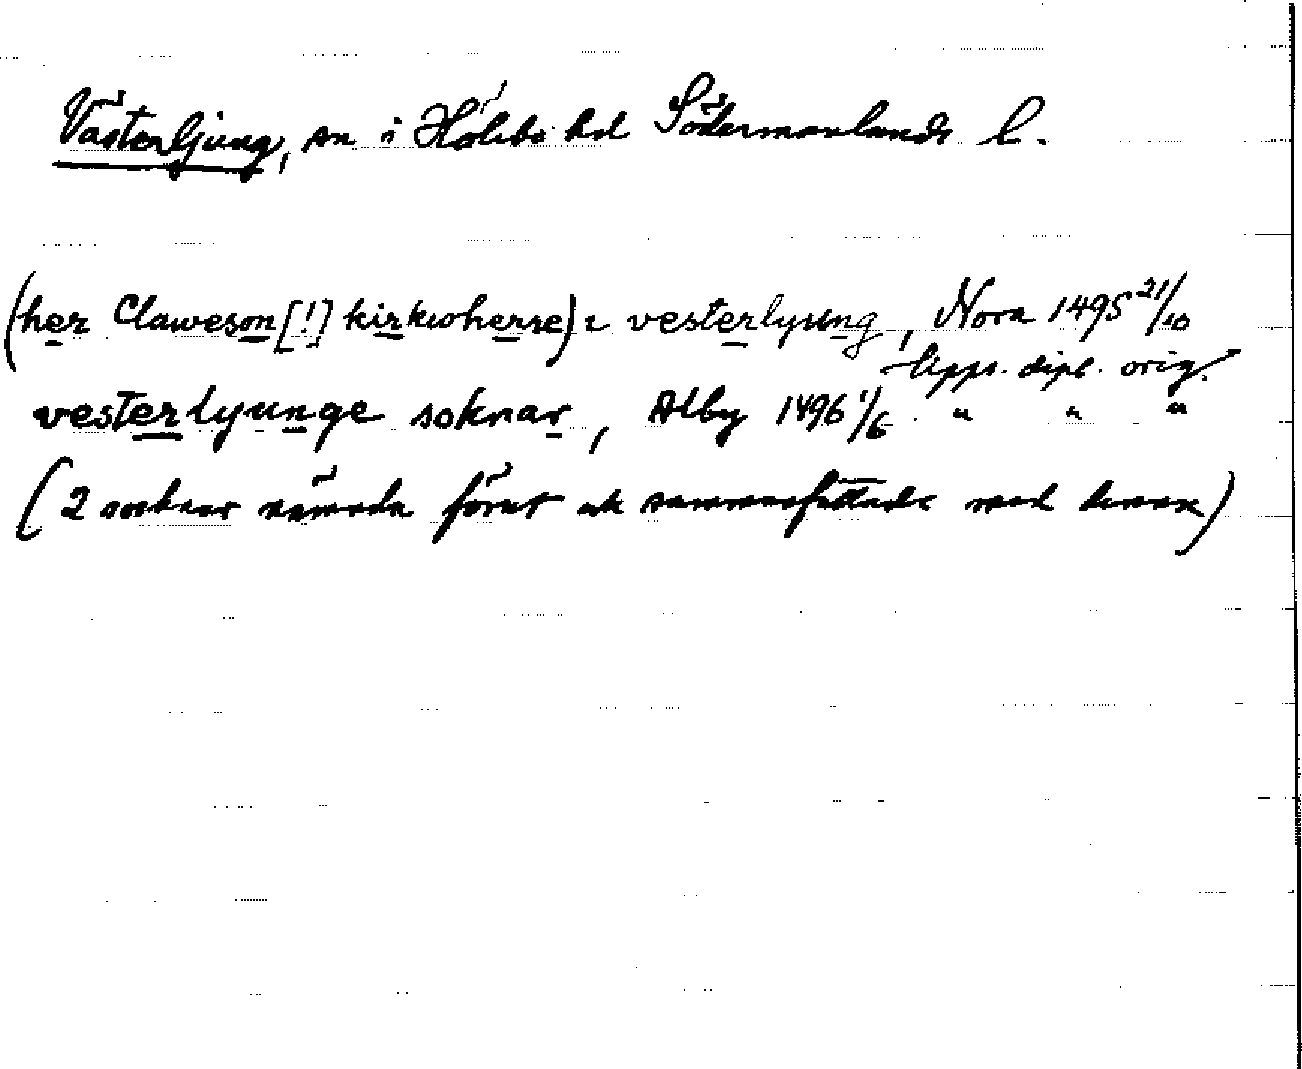 Västerljung, sn i Hölebo hd Södermanlands l.
(her Claweson [!] kirkioherre) i vesterlyung, Nora 1495 21/10
Upps. dipl. orig.
vesterlyunge soknar, Alby 1496 1/6 " " "
(2 socknar nämnda förut och sammanfattade med denna)